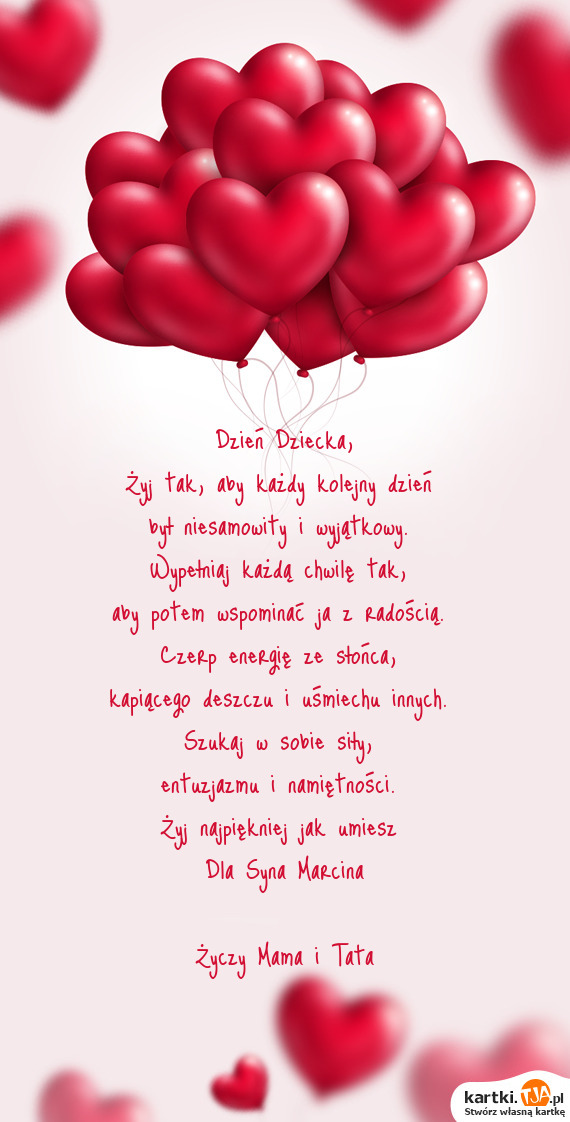 Dzień Dziecka,
Żyj tak, aby każdy kolejny dzień
był niesamowity i wyjątkowy.
Wypełniaj każdą chwilę tak,
aby potem wspominać ja z radością.
Czerp energię ze słońca,
kapiącego deszczu i uśmiechu innych.
Szukaj w sobie siły,
entuzjazmu i namiętności.
Żyj najpiękniej jak umiesz
Dla Syna Marcina
Życzy Mama i Tata
kartki.TJA.pl
Stwórz własną kartkę